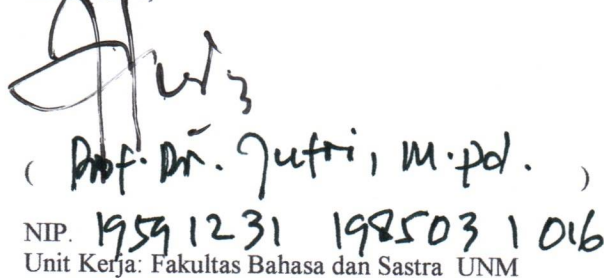 ( Prof. Dr. Jufri, M.pd. )
NIP. 19591231 198503 1 016
Unit Kerja: Fakultas Bahasa dan Sastra UNM